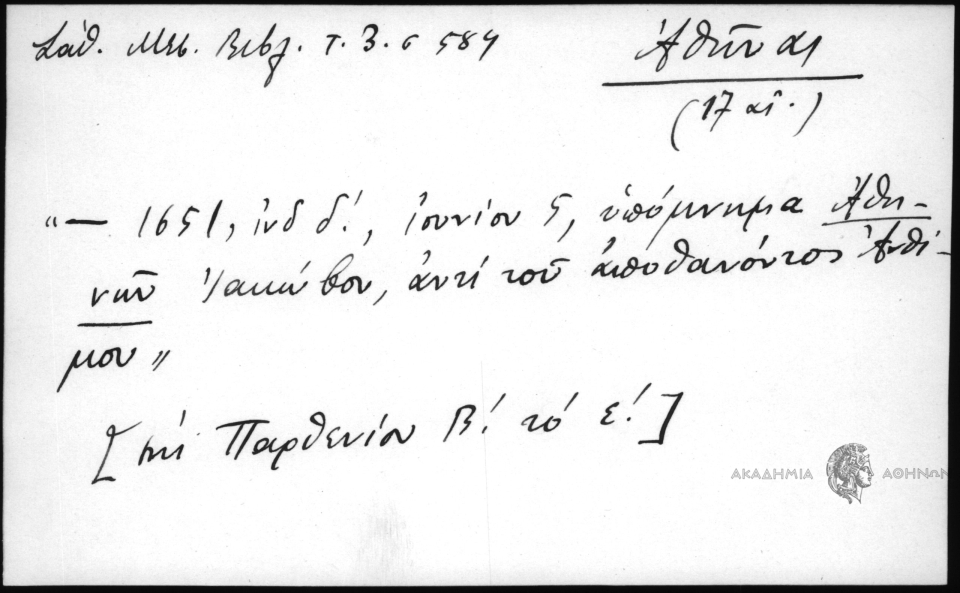 Σάθ. Μεσ. Βιβλ. τ. 3. σ 584
Ἀθῆναι
(17 αἰ.)
"— 1651, ἰνδ δ!, ἰουνίου 5, ὑπόμνημα Ἀθη-
νῶν Ἰακώβου, ἀντί τοῦ ἀποθανόντος Ἀνθί-
μου"
[ἐπί Παρθενίου Β! τό ε!]
ΑΚΑΔΗΜΙΑ ΑΘΗΝΩΝ